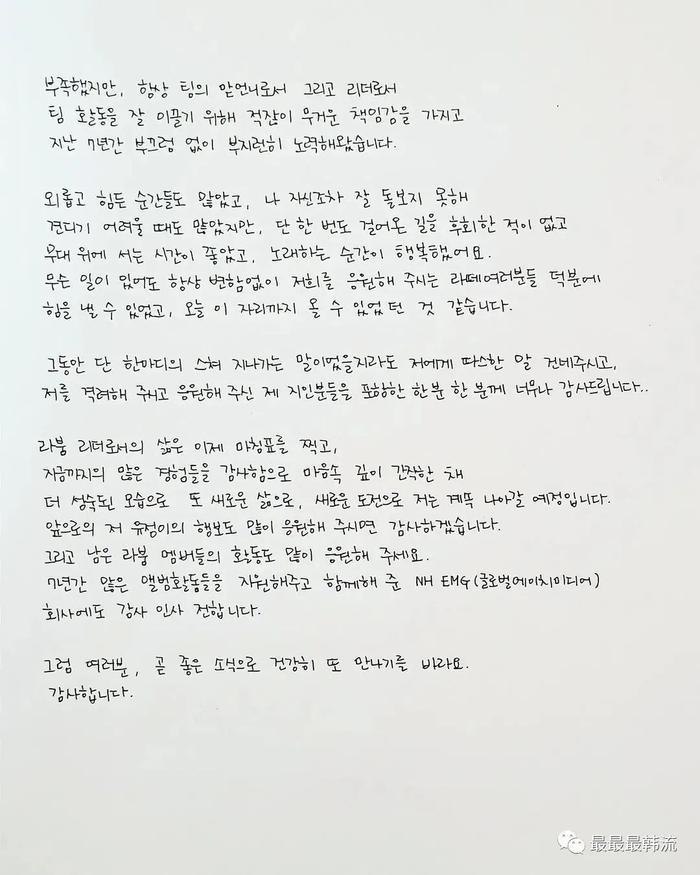 부족했지만, 항상 팀의 맏언니로서 그리고 리더로서
팀 활동을 잘 이끌기 위해 적잖이 무거운 책임감을 가지고
지난 7년간 부끄럼 없이 부지런히 노력해왔습니다.
외롭고 힘든 순간들도 많았고, 나 자신조차 잘 돌보지 못해
견디기 어려울 때도 많았지만, 단 한 번도 걸어온 길을 후회한 적이 없고
무대 위에 서는 시간이 좋았고, 노래하는 순간이 행복했어요.
무슨 일이 있어도 항상 변함없이 저희를 응원해 주시는 라떼여러분들 덕분에
힘을 낼 수 있었고, 오늘 이 자리까지 올 수 있었던 것 같습니다.
그동안 단 한마디의 스쳐 지나가는 말이었을지라도 저에게 따스한 말 건네주시고,
저를 격려해 주시고 응원해 주신 제 지인분들을 포함한 한분 한 분께 너무나 감사드립니다..
라붐 리더로서의 삶은 이제 마침표를 찍고,
지금까지의 많은 경험들을 감사함으로 마음속 깊이 간직한 채
더 성숙된 모습으로 또 새로운 삶으로, 새로운 도전으로 저는 계속 나아갈 예정입니다.
앞으로의 저 유정이의 행보도 많이 응원해 주시면 감사하겠습니다.
그리고 남은 라붐 멤버들의 활동도 많이 응원해 주세요.
7년간 많은 앨범활동들을 지원해주고 함께해 준 NH EMG(글로벌에이치미디어)
회사에도 감사 인사 전합니다.
그럼 여러분, 곧 좋은 소식으로 건강히 또 만나기를 바라요.
감사합니다.
最最最韩流